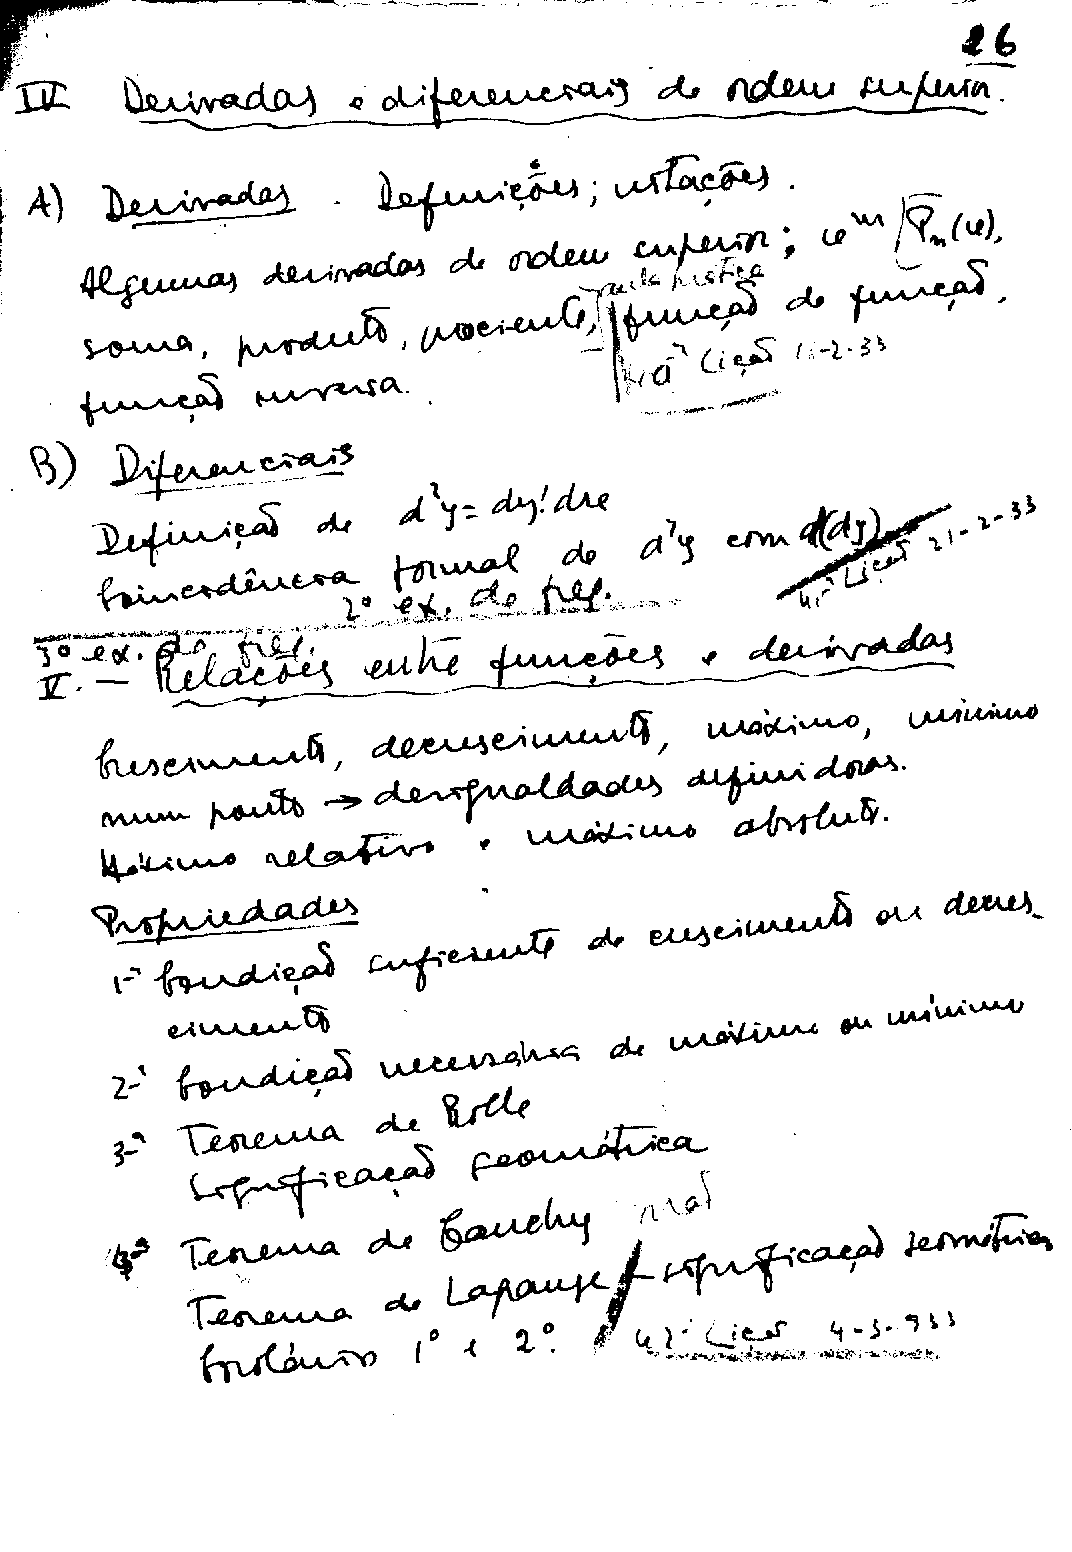 26
IV Derivadas e diferenciais de ordem superior.
A) Derivadas. Definições; notações.
Algumas derivadas de ordem superior; u^m / P_n(u),
soma, produto, quociente, função de função,
Lição 2-33
função inversa.
B) Diferenciais
Definição de d²y = dy'.dx
Coincidência formal de d²y com d(dy)
Lição 21-2-33
2º ex. de freq.
3º ex. de freq.
V. — Relações entre funções e derivadas
Crescimento, decrescimento, máximo, mínimo
num ponto → desigualdades definidoras.
Máximo relativo e máximo absoluto.
Propriedades
1-ª Condição suficiente de crescimento ou decres-
cimento
2-ª Condição necessária de máximo ou mínimo
3-ª Teorema de Rolle
Significação geométrica
4-ª Teorema de Cauchy não
Teorema de Lagrange — significação geométrica
Corolário 1º e 2º. 42ª Lição 4-3-933